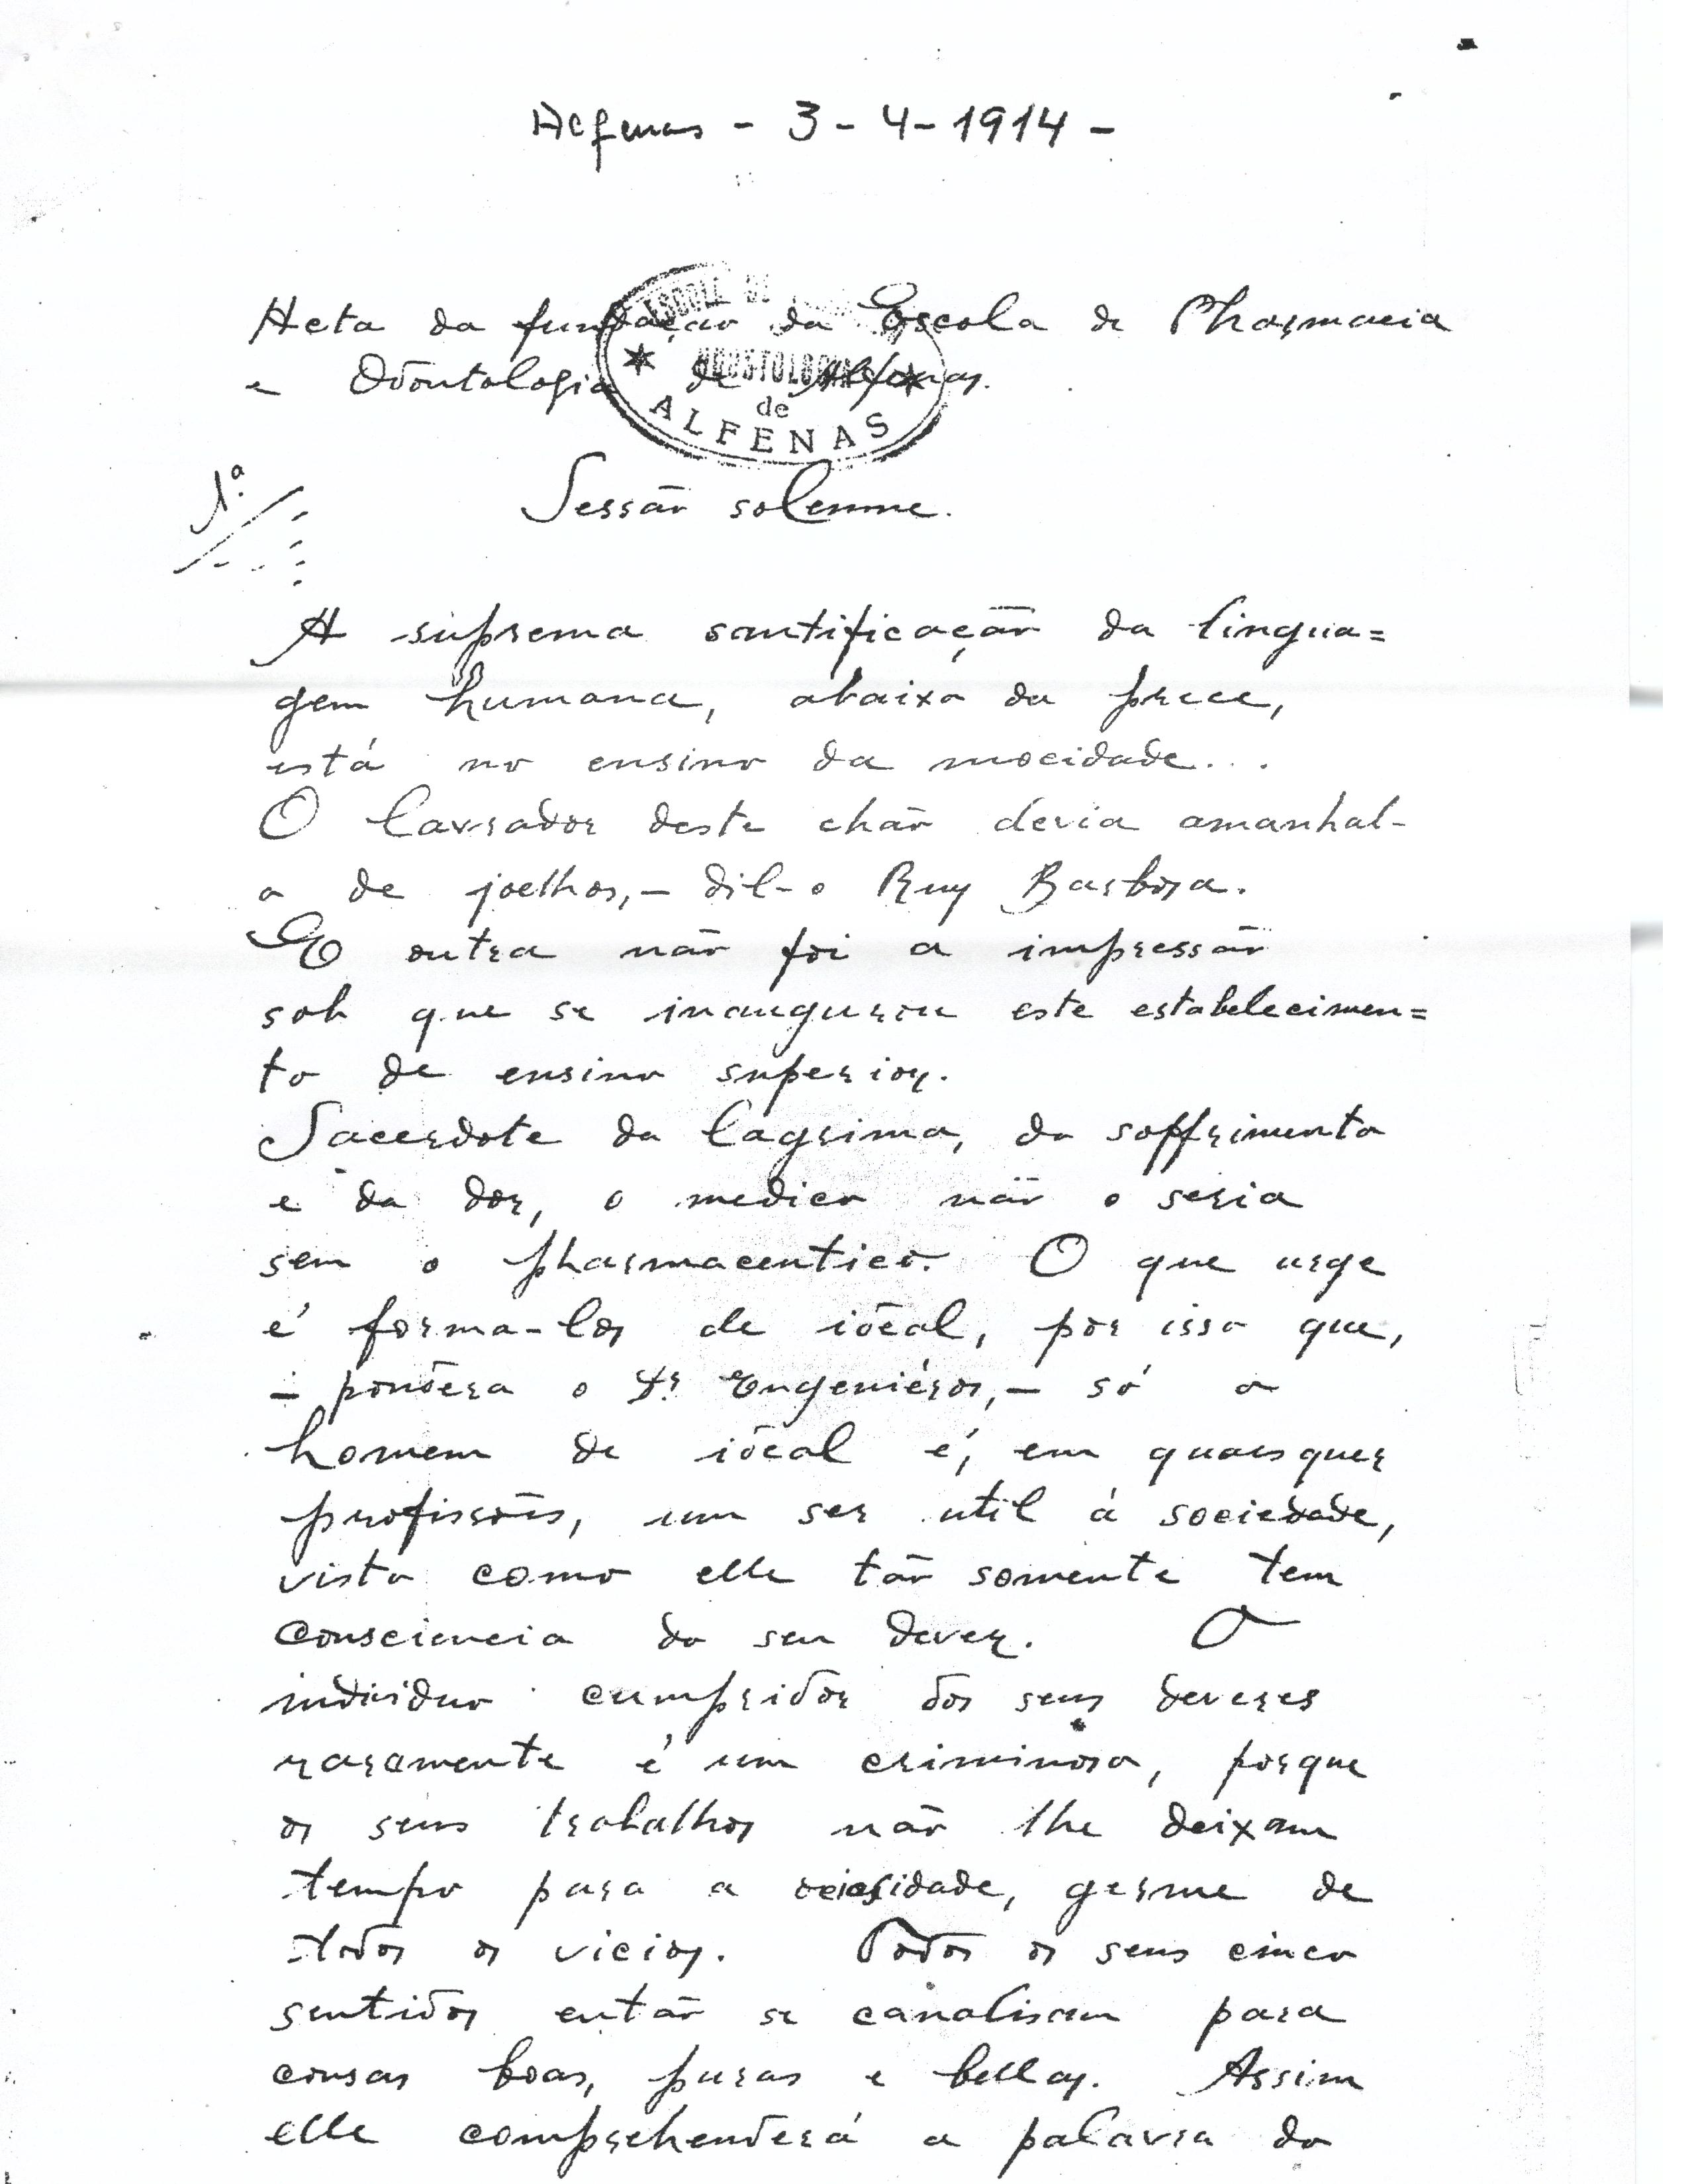 Alfenas - 3 - 4 - 1914 -
Acta da fundação da Escola de Pharmacia
e Odontologia de Alfenas.
ESCOLA DE
ODONTOLOGIA
de
ALFENAS
1ª
Sessão solemne.
A suprema santificação da lingua=
gem humana, abaixo da prece,
está no ensino da mocidade...
O lavrador deste chão devia amanhal-
o de joelhos, – dil-o Ruy Barbosa.
E outra não foi a impressão
sob que se inaugurou este estabelecimen=
to de ensino superior.
Sacerdote da lagrima, do soffrimento
e da dor, o medico não o seria
sem o pharmaceutico. O que urge
é forma-los de idéal, por isso que,
– pondera o Dr. Engeniéros, – só o
homem de idéal é, em quaesquer
profissões, um ser util á sociedade,
visto como elle tão somente tem
consciencia do seu dever. O
individuo cumpridor dos seus deveres
raramente é um criminoso, porque
os seus trabalhos não lhe deixam
tempo para a ociosidade, germe de
todos os vicios. Todos os seus cinco
sentidos então se canalisam para
cousas boas, puras e bellas. Assim
elle comprehenderá a palavra do